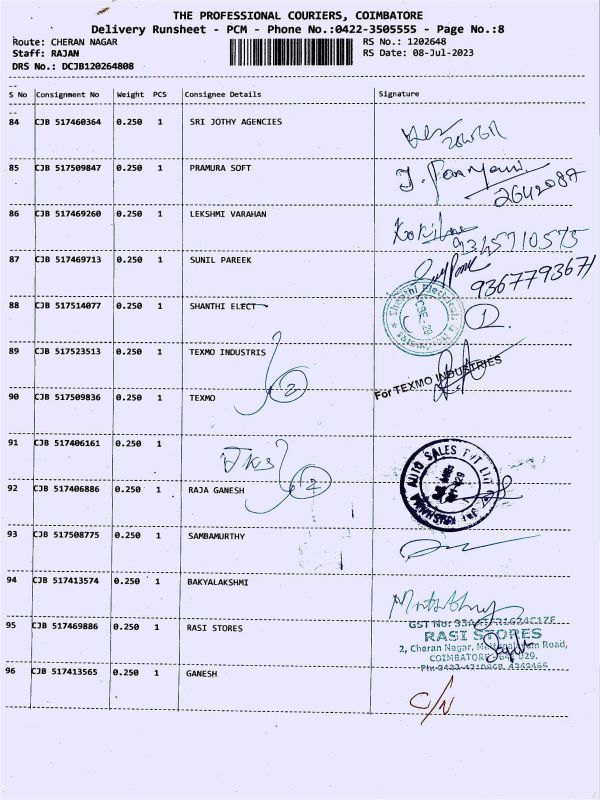 THE PROFESSIONAL COURIERS, COIMBATORE
Delivery Runsheet - PCM - Phone No.:0422-3505555 - Page No.:8
Route: CHERAN NAGAR RS No.: 1202648
Staff: RAJAN RS Date: 08-Jul-2023
DRS No.: DCJB120264808
S No Consignment No Weight PCS Consignee Details Signature
84 CJB 517460364 0.250 1 SRI JOTHY AGENCIES
85 CJB 517509847 0.250 1 PRAMURA SOFT
2642087
86 CJB 517469260 0.250 1 LEKSHMI VARAHAN
9345710575
87 CJB 517469713 0.250 1 SUNIL PAREEK
9367793671
88 CJB 517514077 0.250 1 SHANTHI ELECT
1
89 CJB 517523513 0.250 1 TEXMO INDUSTRIS
For TEXMO INDUSTRIES
90 CJB 517509836 0.250 1 TEXMO
2
91 CJB 517406161 0.250 1
AUTO SALES PVT LTD
2
92 CJB 517406886 0.250 1 RAJA GANESH
93 CJB 517508775 0.250 1 SAMBAMURTHY
94 CJB 517413574 0.250 1 BAKYALAKSHMI
95 CJB 517469886 0.250 1 RASI STORES
GST No:
RASI STORES
2, Cheran Nagar, Road,
COIMBATORE
96 CJB 517413565 0.250 1 GANESH
C/N